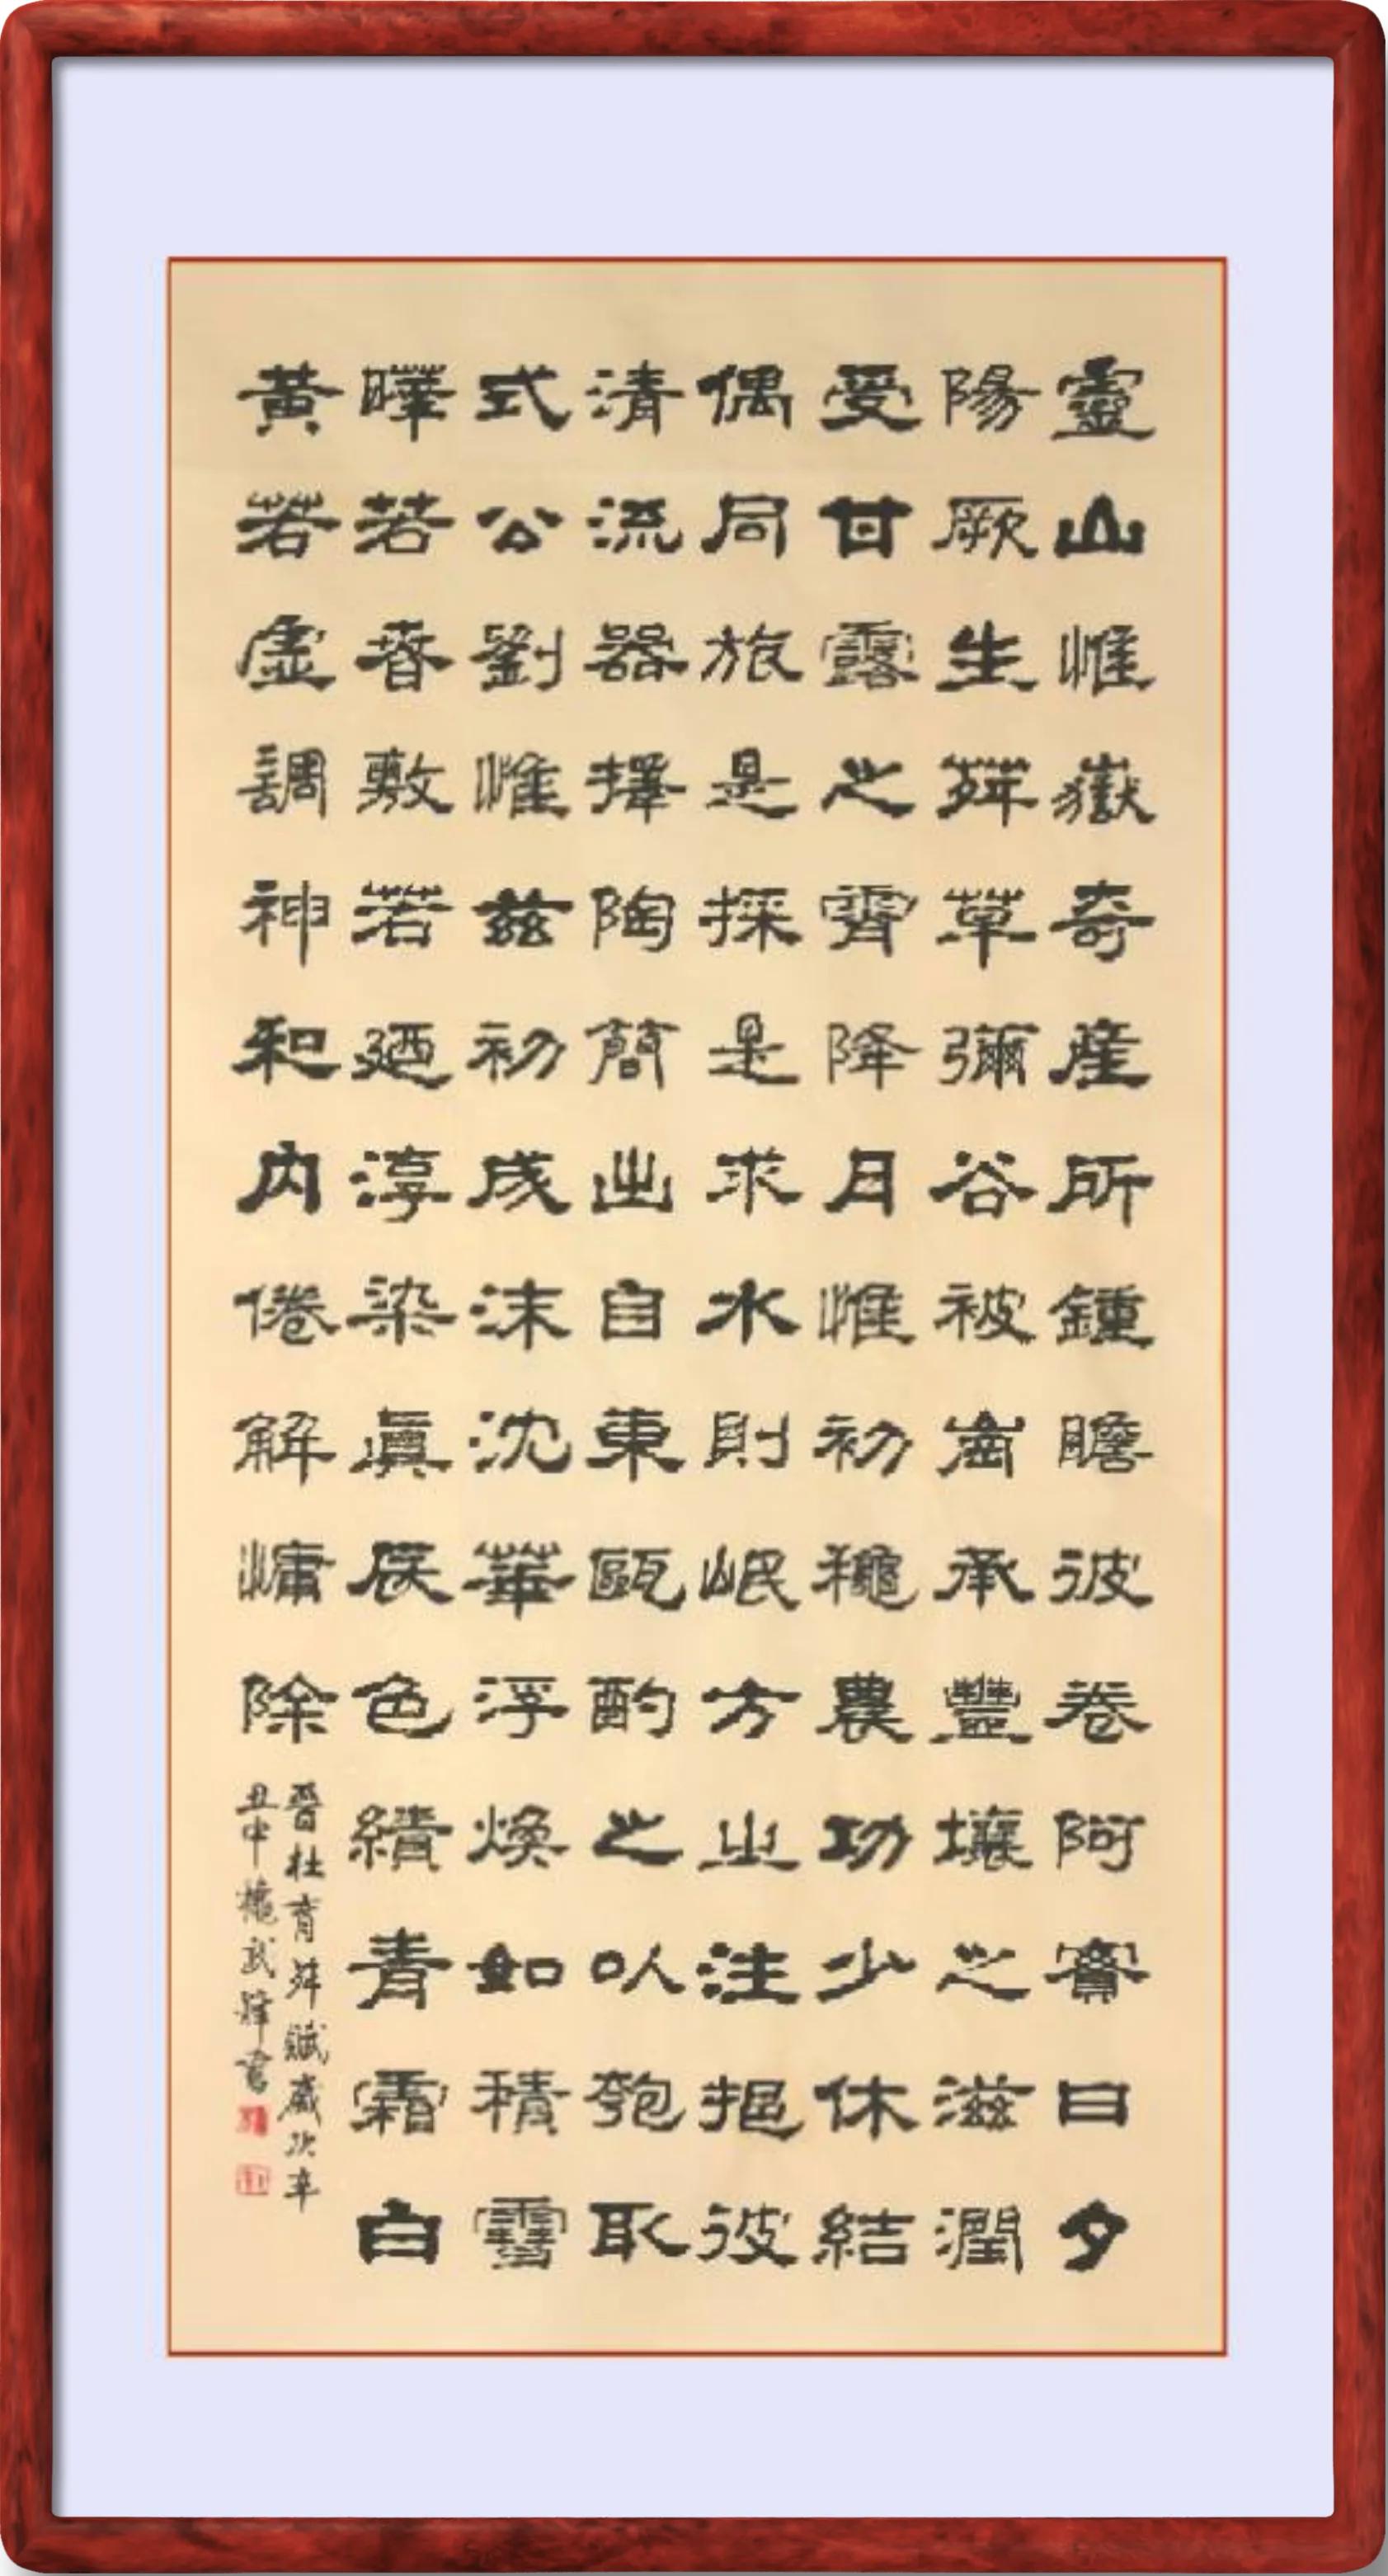 靈山惟嶽奇産所鍾瞻彼卷阿實曰夕
陽厥生荈草彌谷被崗承豐壤之滋潤
受甘露之霄降月惟初穐農功少休結
偶同旅是採是求水則岷方之注挹彼
清流器擇陶簡出自東甌酌之以匏取
式公劉惟茲初成沫沈華浮煥如積雪
曄若春敷若廼淳染眞辰色繢青霜白
黃若虛調神和内倦解慵除
晉杜育荈賦歲次辛
丑中穐武書